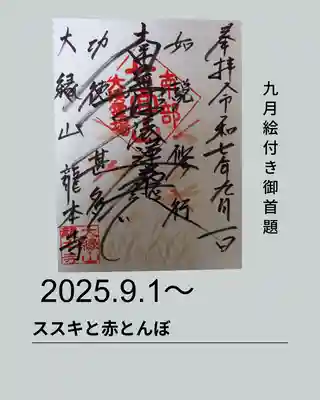 九月絵付き御首題
奉拝令和七年九月一日
如説修行
南無妙法蓮華経
功徳甚多
大縁山龍本寺
2025.9.1〜
ススキと赤とんぼ